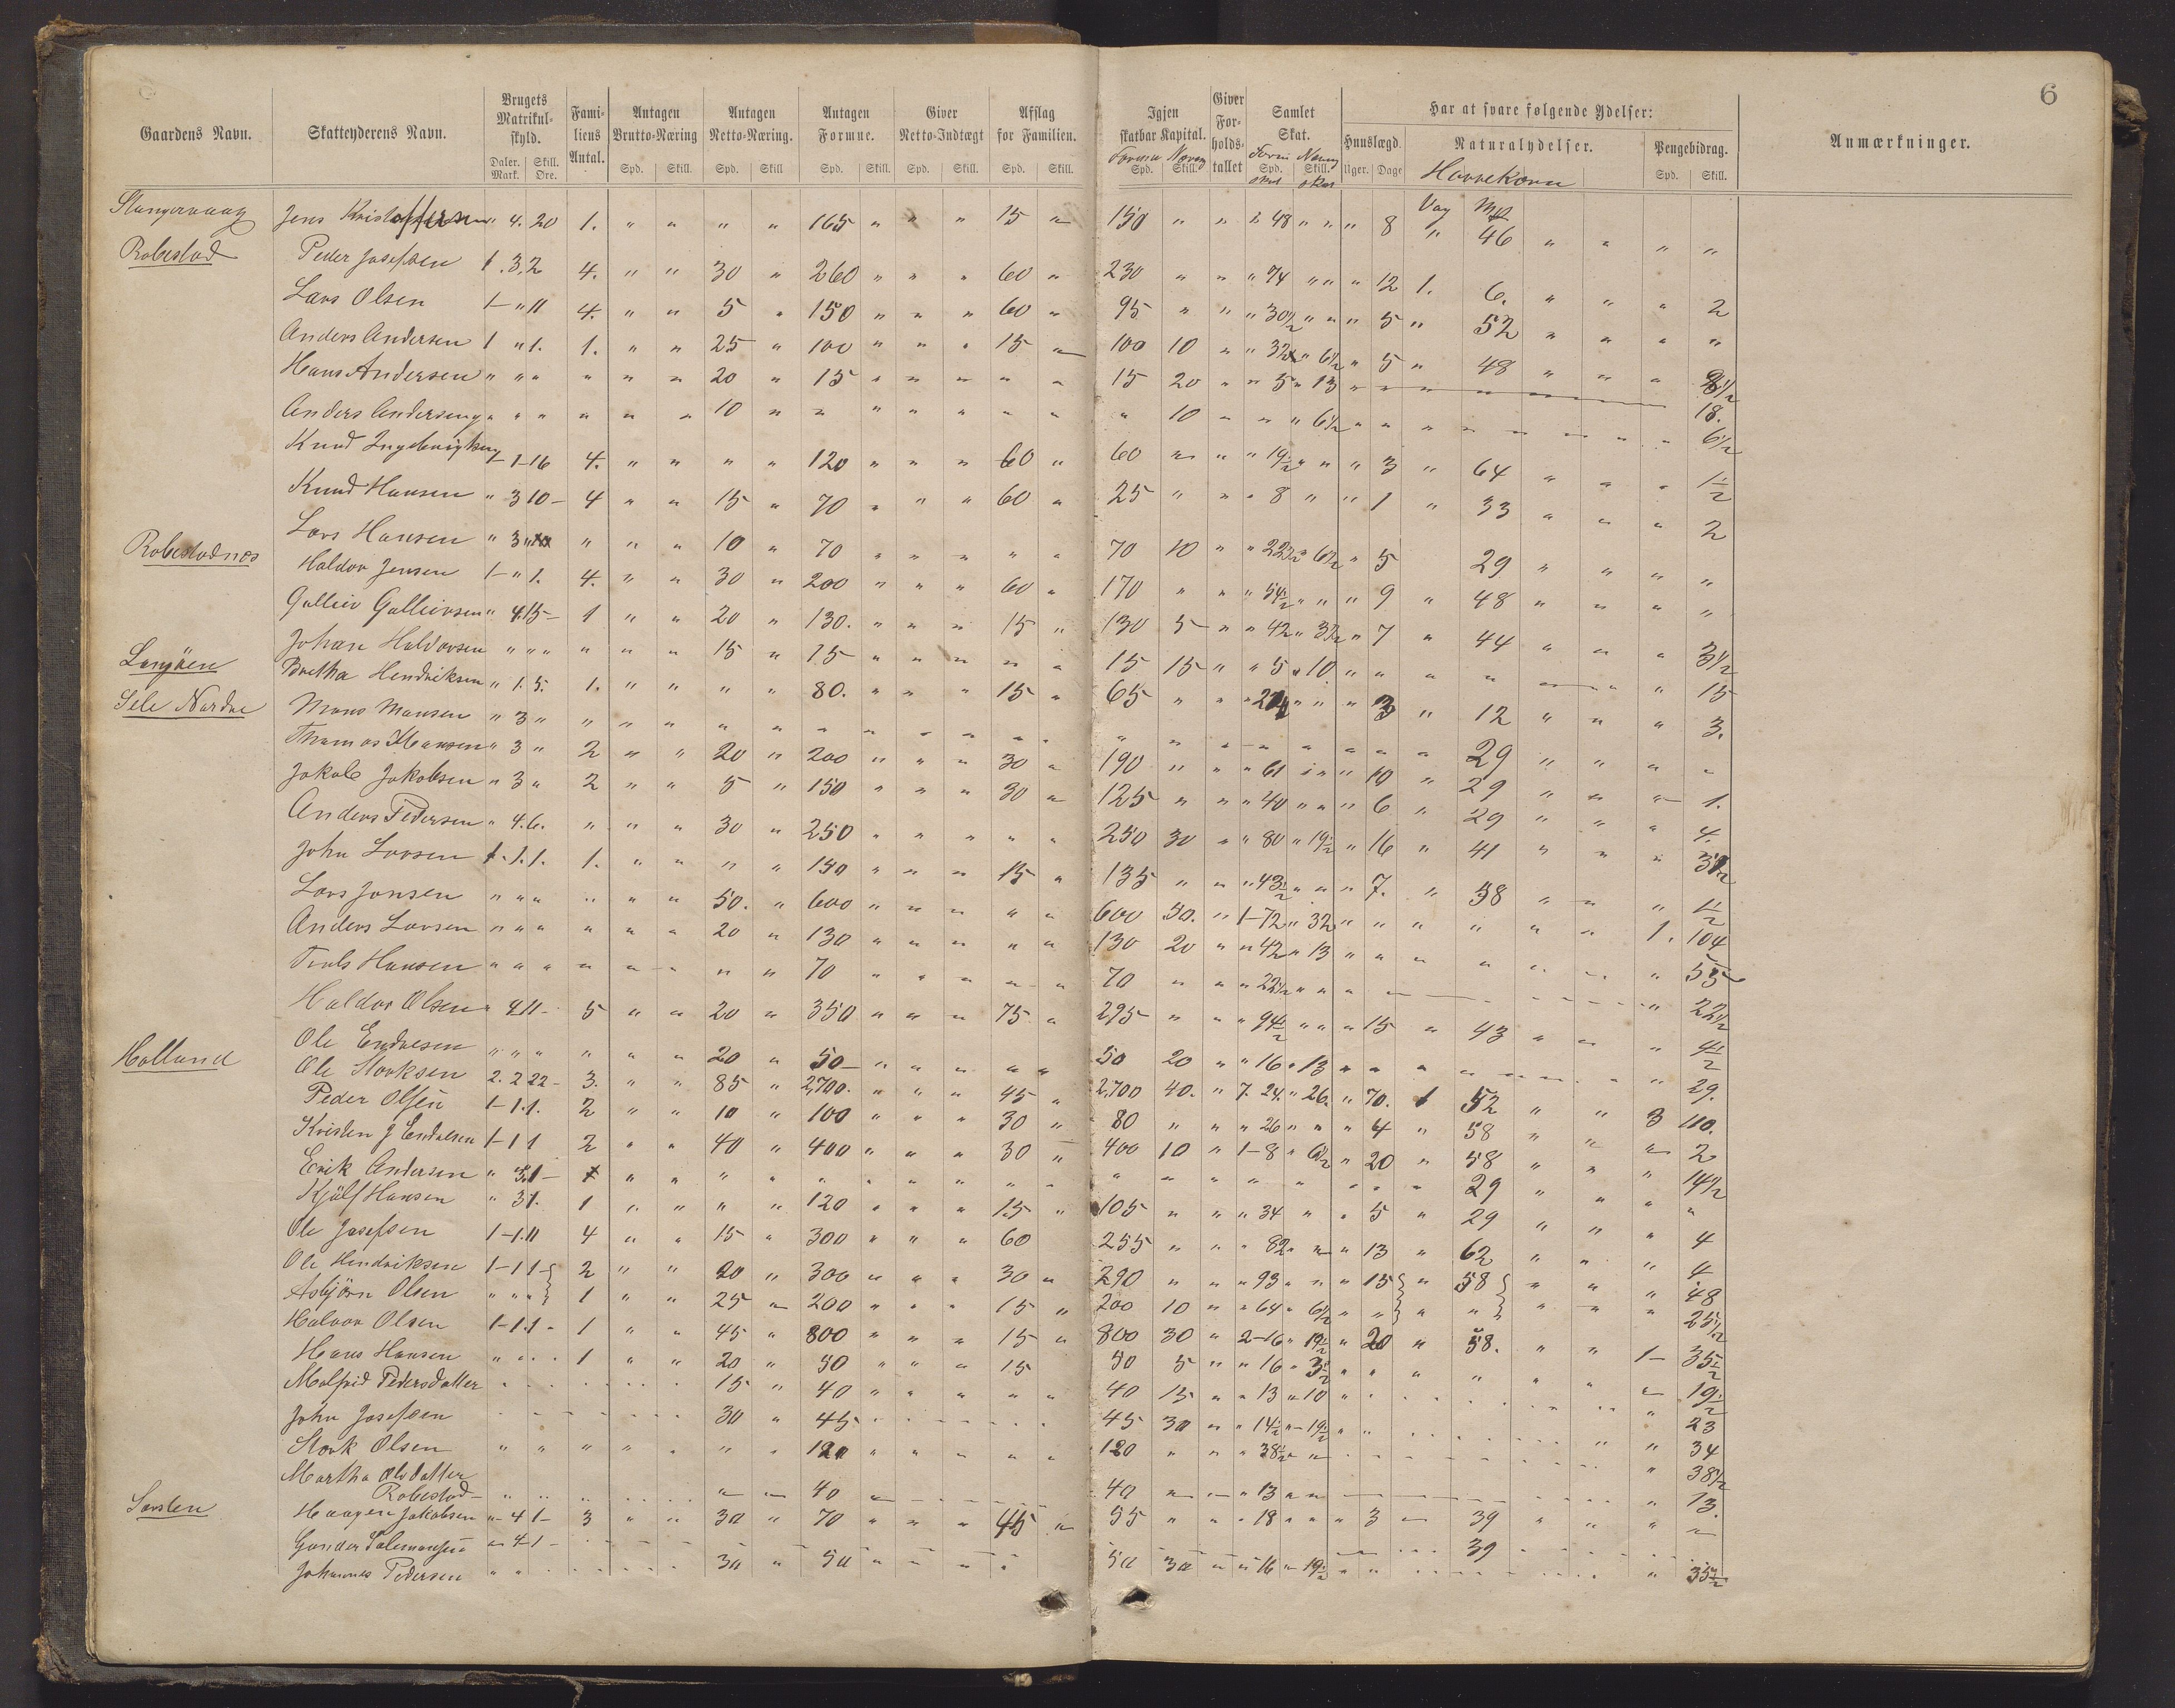 6
Gaardens Navn. Skatteyderens Navn. Brugets Matrikul-skyld. Fami-liens Antal. Antagen Brutto-Næring Antagen Netto-Næring. Antagen Formue. Giver Netto-Indtægt Afslag for Familien. Igjen skatbar Kapital. Giver For-holds-tallet Samlet Skat. Har at svare følgende Ydelser: Anmærkninger.
Daler. Mark. Skill. Øre. Spd. Skill. Spd. Skill Spd. Skill. Spd. Skill. Spd. Skill. Formue Spd. Næring Skill. Spd. Skill. Dage Naturalydelser. Havrekorn Pengebidrag. Spd. Skill.
Vog Mk
Stangervaag Jens Kristoffersen " 4. 20 1. " " " " 165 " " " 15 " 150 " " " 48 " " " 8 " 46 " " " "
Robestad Peder Josefsen 1. 3. 2 4. " " 30 " 260 " " " 60 " 230 " " " 74 " " " 12 1. 6. " " " 2
Lars Olsen 1 - " 11 4. " " 5 " 150 " " " 60 " 95 " " " 30 1/2 " " " 5 " 52 " " " "
Anders Andersen 1 " 1. 1. " " 25 " 100 " " " 15 " 100 10 " " 32 " 6 1/2 " 5 " 48 " " " 8 1/2
Hans Andersen " " " " " " 20 " 15 " " " " " 15 20 " " 5 " 13 " " " " " " " 18.
Anders Andersen yg " " " " " " 10 " " " " " " " " 10 " " " " 6 1/2 " " " " " " " 6 1/2
Knud - 1 - 16 4. " " " " 120 " " " 60 " 60 " " " 19 1/2 " " " 3 " 64 " " " 1 1/2
Knud Hansen " 3 10 - 4 " " 15 " 70 " " " 60 " 25 " " " 8 " " " 1 " 33 " " " 2
Lars Hansen " 3 " " " " 10 " 70 " " " " " 70 10 " " 22 1/2 " 6 1/2 " 5 29 " " " "
Robestadnes Haldor Jensen 1 - " 1. 4. " " 30 " 200 " " " 60 " 170 " " " 54 1/2 " " " 9 " 48 " " " "
Gulleiv Gulleivsen " 4. 15 - 1 " " 20 " 130. " " " 15 " 130 5 " " 42 " 3 1/2 " 7 " 44 " " " 3 1/2
Johan Haldorsen " " " " " " 15 " 15 " " " " " 15 15 " " 5 " 10 " " " " " " " 15
Langöen Hendriksen " 1. 5. 1. " " " " 80. " " " 15 " 65 " " " " " " 3 " 12 " " " 3.
Sele Nordre Mons Monsen " 3 " " " " " " " " " " " " " " " " " " " " " 29 " " " "
Thomas Hansen " 3 " 2 " " 20 " 200 " " " 30 " 190 " " " 61 " " " 10 " 29 " " " 1.
Jakob Jakobsen " 3 " 2 " " 5 " 150 " " " 30 " 125 " " " 40 " " " 6 " 29 " " " 4.
Anders Pedersen " 4. 6. " " " 30 " 250 " " " " " 250 30 " " 80 " 19 1/2 " 16 " 41 " " " 3 1/2
John Larsen 1. 1. 1. 1. " " " " 150 " " " 15 " 135 " " " 43 1/2 " " " 7. " 58 " " " 1 1/2
Lars Jansen " " " " " " 50. " 600 " " " " " 600 50. " 1 - 72 " 32 " " " " " " 1. 104
Anders Larsen " " " " " " 20 " 130 " " " " " 130 20 " " 42 " 13 " " " " " " " 55
Truls Hansen " " " " " " " " 70 " " " " " 70 " " " 22 1/2 " " " " " " " " " 22 1/2
Haldor Olsen " 4 11 - 5 " " 20 " 350 " " " 75 " 295 " " " 94 1/2 " " " 15 " 43 " " " 4 1/2
Ole Endresen " " " " " " 20 " 50 - " " " " " 50 20 " " 16 " 13 " " " " " " " 29.
Holland Ole Storksen 2. 2 22 - 3. " " 85 " 2,700. " " " 45 " 2,700 40. " 7. 24. " 26. " 70. 1 52 " " 3 110.
Peder Olsen 1 - 1. 1. 2 " " 10 " 100 " " " 30 " 80 " " " 26 " " " 4 " 58 " " " 2
Kristen J Endresen 1 - 1 1 2 " " 40 " 400 " " " 30 " 400 10 " 1 - 8 " 6 1/2 " 20 " 58 " " " 14 1/2
Erik Andersen " 3. 1 - " " " " " " " " " " " " " " " " " " " 29 " " " "
Kjölf Hansen " 3 1. 1 " " " " 120 " " " 15 " 105 " " " 34 " " " 5 " 29 " " " 4
Ole Josefsen 1 - 1. 11 4 " " 15 " 300 " " " 60 255 " " " 82 " " " 13 " 62 " " " 4
Ole Hendriksen 1 - 1 1 - 2 " " 20 " 300 " " " 30 " 290 " " " 93 " " " 15 " 58 " " " 48
Asbjörn Olsen " " " 1 " " 25 " 200 " " " 15 " 200 10 " " 64 " 6 1/2 " " " " " " " 25 1/2
Halvor Olsen 1 - 1. 1 - 1 " " 45 " 800 " " " 15 " 800 30 " 2 - 16 " 19 1/2 " 20 " 58. " " 1 - 35 1/2
Hans Hansen " " " 1 " " 20 " 50 " " " 15 50 5 " " 16 " 3 1/2 " " " " " " " 19 1/2
Malfrid Pedersdatter " " " " " " 15 " 40 " " " " " 40 15 " " 13 " 10 " " " " " " " 23
John Josefsen " " " " " " 30 " 45 " " " " " 45 30 " " 14 1/2 " 19 1/2 " " " " " " " 34
Stork Olsen " " " " " " " " 120 " " " " " 120 " " " 38 1/2 " " " " " " " " " 38 1/2
Martha Olsdatter
Robestad - " " " " " " " " 40 " " " " " 40 " " " 13 " " " " " " " " " 13.
Sorslen Haagen Jakobsen " 4 1 - 3 " " 30 " 70 " " " 45 " 55 " " " 18 " " " 3 " 39 " " " "
Gunder " 4 1 - 39
Johannes Pedersen " " " " " " 30 " 50 " " " " 50 30 " " 16 " 19 1/2 " " " " " " " 35 1/2